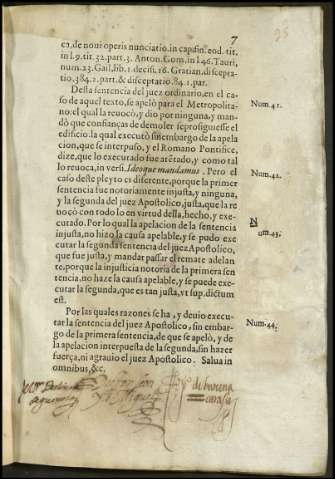 7
ca, de noui operis nunciatio. in cap. fin. eod. tit.
in l. 9. tit. 32. part. 3. Anton. Gom. in l. 46. Tauri,
num. 23. Gail, lib. 1. decis. 16. Gratian. discepta-
tio. 384. 2. part. & disceptatio. 84. 1. par.
Desta sentencia del juez ordinario, en el ca-
so de aquel texto, se apelò para el Metropolita-
no: el qual la reuocò, y dio por ninguna, y man-
dò que con fianças de demoler se prosiguiesse el
edificio. la qual executò sin embargo de la apela-
cion, que se interpuso, y el Romano Pontifice,
dize, que lo executado fue atẽtado, y como tal
lo reuoca, in versi. Ideoque mandamus. Pero el
caso deste pleyto es diferente, porque la primer
sentencia fue notoriamente injusta, y ninguna,
y la segunda del juez Apostolico, justa, que la re
uocò con todo lo en virtud dessa, hecho, y exe-
cutado. Por lo qual la apelacion de la sentencia
injusta, no hizo la causa apelable, y se pudo exe
cutar la segunda sentencia del juez Apostolico,
que fue justa, y mandar passar el remate adelan
te, porque la injusticia notoria de la primera sen
tencia, no haze la causa apelable, y se puede exe-
cutar la segunda, que es tan justa, vt sup. dictum
est.
Por las quales razones se ha, y deuio execu-
tar la sentencia del juez Apostolico, sin embar-
go de la primera sentencia, de que se apelò, y de
la apelacion interpuesta de la segunda, sin hazer
fuerça, ni agrauio el juez Apostolico. Salua in
omnibus, &c.
Num. 41.
Num. 42.
N
um. 43.
Num. 44.